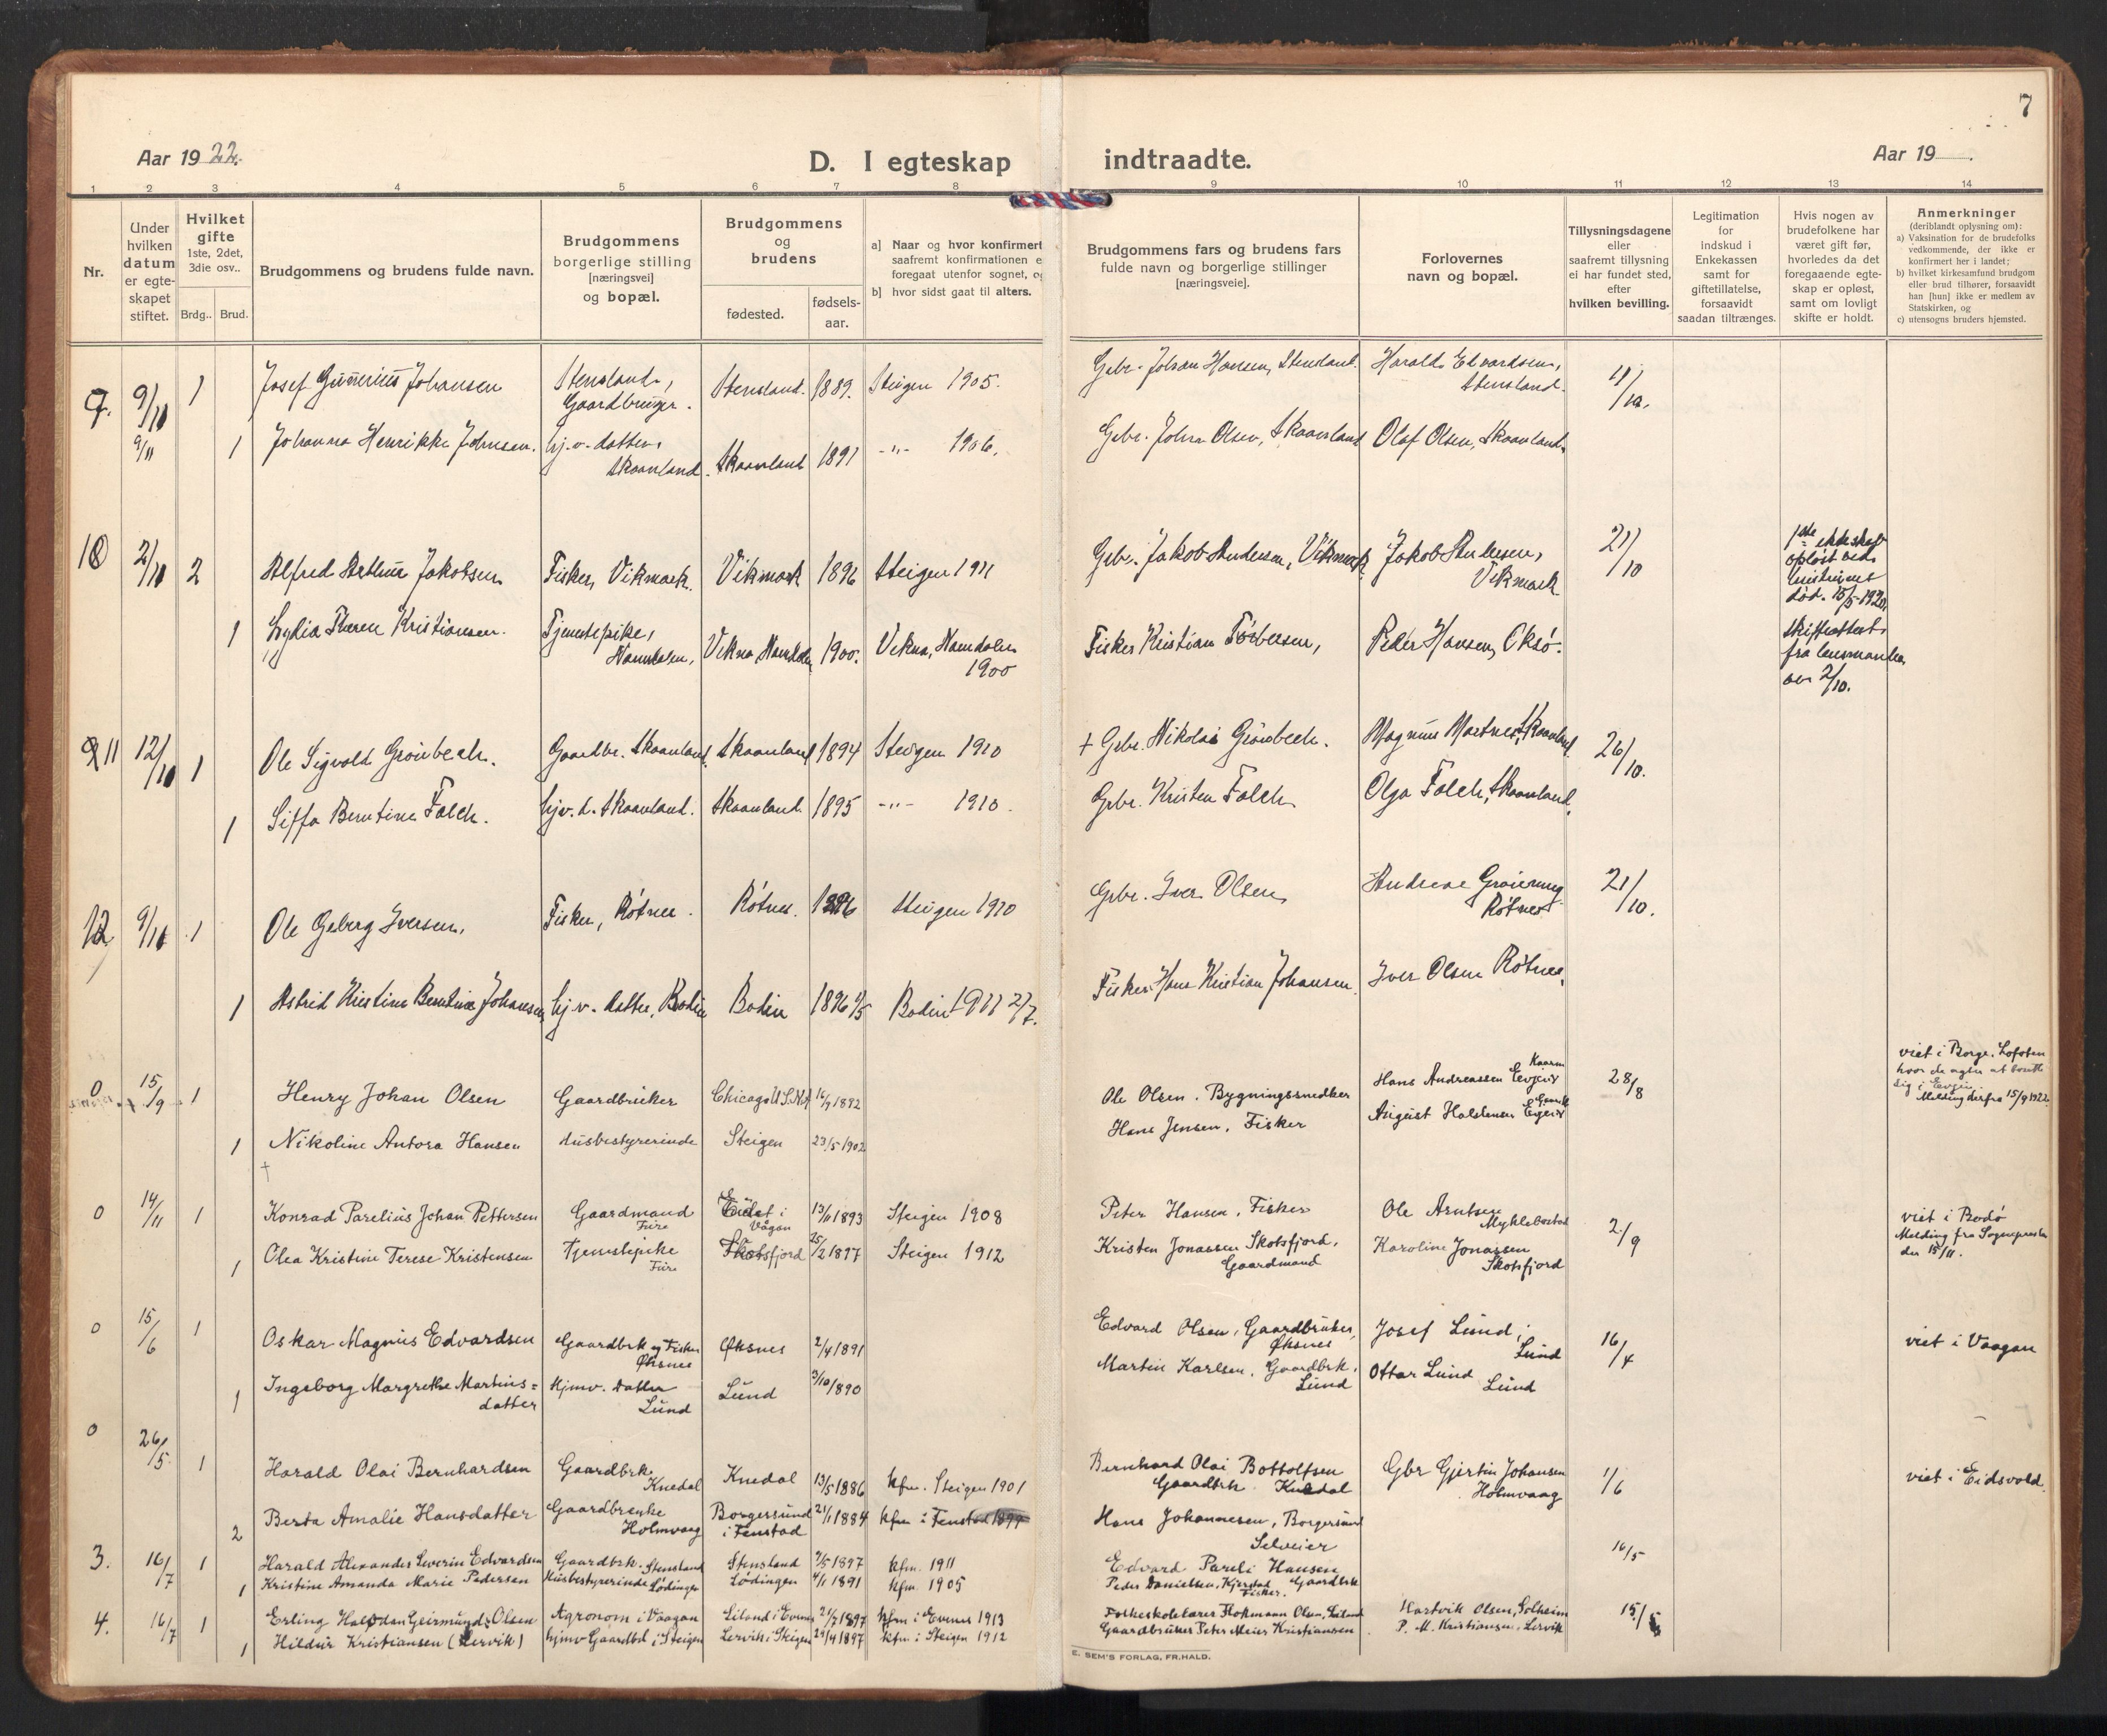 7
Aar 1922.
D. I egteskap indtraadte.
Aar 19
1 2 3 4 5 6 7 8 9 10 11 12 13 14
Nr.
Under hvilken datum er egteskapet stiftet.
Hvilket gifte 1ste, 2det, 3die osv..
Brdg.. Brud.
Brudgommens og brudens fulde navn.
Brudgommens borgerlige stilling [næringsvei] og bopæl.
Brudgommens og brudens
fødested.
fødsels-aar.
a) Naar og hvor konfirmert saafremt konfirmationen foregaat utenfor sognet,
b) hvor sidst gaat til alters.
Brudgommens fars og brudens fars fulde navn og borgerlige stillinger [næringsveie].
Forlovernes navn og bopæl.
Tillysningsdagene eller saafremt tillysning ei har fundet sted, efter hvilken bevilling.
Legitimation for indskud i Enkekassen samt for giftetillatelse, forsaavidt saadan tiltrænges.
Hvis nogen av brudefolkene har været gift før, hvorledes da det foregaaende egteskap er opløst, samt om lovligt skifte er holdt.
Anmerkninger (deriblandt oplysning om):
a) Vaksination for de brudefolks vedkommende, der ikke er konfirmert her i landet;
b) hvilket kirkesamfund brudgom eller brud tilhører, forsaavidt han [hun] ikke er medlem av Statskirken, og
c) utensogns bruders hjemsted.
9. 9/11 1 Josef Gunnerius Johansen Stensland, Gaardbruger. Stensland. 1889. Steigen 1905. Gbr. Johan Hansen, Stensland. Harald Edvardsen, Stensland.
9/11 1 Johanna Henrikke Johnsen. hj.v. datter, Skaanland. Skaanland 1891 -"- 1906. Gbr. John Olsen, Skaanland Olaf Olsen, Skaanland.
10 2/11 2 Alfred Arthur Jakobsen Fisker, Vikmark. Vikmark 1896 Steigen 1911 Gbr. Jakob Andersen, Vikmark Jakob Andersen, Vikmark 21/10 1ste ekteskap opløst ved hustruens død. 15/5-1920. Skifteattest fra lensmanden av 2/10.
1 Lydia Karen Kristiansen. Tjenestepike, Namdalen, Vikna, Namdalen 1900. Vikna, Namdalen 1900 Fisker Kristian Torbersen, Peder Hansen, Oksø.
11 12/11 1 Ole Sigvald Grønbech. Gaardbr. Skaanland. Skaanland 1894 Steigen 1910 + Gbr. Nikolai Grønbech. Magnus Martnes, Skaanland. 26/10.
1 Siffa Berntine Falch. hjv. d. Skaanland. Skaanland 1895 -"- 1910. Gbr. Kristen Falch Olga Falch, Skaanland.
12 9/11 1 Ole Geberg Iversen, Fisker, Røtnes. Røtnes. 1896 Steigen 1910 Gbr. Iver Olsen Røtnes 21/10.
1 Astrid Kristine Berntine Johansen hj.v. datter, Bodin Bodin 1896 Bodin 1911 2/7. Fisker Hans Kristian Johansen Iver Olsen Røtnes.
0 15/9 1 Henry Johan Olsen Gaardbruker Chicago U.S.N.A 1892 Ole Olsen. Bygningssnedker Hans Andreassen 28/8 viet i Borge. Lofoten hvor de agter at bosætte sig i Evjen Melding derfra 15/9 1922.
1 Nikoline Antora Hansen Husbestyrerinde Steigen 23/5-1902 Hans Jensen. Fisker August Haldensen
†
0 14/11 1 Konrad Parelius Johan Pettersen Gaardmand Fure Eidet i Vågan 13/11 1893 Steigen 1908 Peter Hansen. Fisker Ole Arntsen Myklebostad 2/9 viet i Bodø Melding fra Sognepresten der 15/11.
1 Olea Kristine Terese Kristensen Tjenestepike Fure Skotsfjord 25/2 1897 Steigen 1912 Kristen Jonassen Skotsfjord. Gaardmand Karoline Jonassen Skotsfjord
0 15/6 1 Oskar Magnus Edvardsen Gaardbrk og Fisker Øksnes Øksnes 2/4 1891 Edvard Olsen, Gaardbruker, Øksnes Josef Lund, Lund 16/4 viet i Vaagan
1 Ingeborg Margrethe Martins=datter Hjmv. Datter Lund Lund 3/10 1890 Martin Karlsen. Gaardbrk. Lund Ottar Lund Lund
0 26/5 1 Harald Olai Bernhardsen Gaardbrk. Knedal Knedal 13/5 1886 kfm. Steigen 1901 Bernhard Olai Bottolfsen Gaardbrk Knedal Gbr Gjertin Johansen Holmvaag 1/6 viet i Eidsvold.
2 Berta Amalie Hansdatter Gaardbrenke Holmvaag Borgersund i Fenstad 21/1 1884 kfm i Fenstad 1899 Hans Johannesen, Borgersund Selveier
3. 16/7 1 Harald Alexander Severin Edvardsen Gaardbrk. Stensland Stensland 7/5 1897 kfm. 1911 Edvard Pareli Hansen Gaardbrk 16/5
1 Kristine Amanda Marie Pedersen Husbestyrerinde Lødingen Lødingen 4/1 1891 kfm. 1905 Peder Danielsen, Kjerstad Fisker.
4. 16/7 1 Erling Halvdan Geirmund Olsen Agronom i Vaagan Liland i Evenes 21/7 1897 kfm i Evenes 1913 Folkeskolelærer Hofmann Olsen, Liland Hartvik Olsen, Solheim 15/5
1 Hildur Kristiansen (Lervik) hjmv Gaardbd i Steigen Lervik i Steigen 24/4 1897 kfm i Steigen 1912 Gaardbruker Peter Meier Kristiansen P. M. Kristiansen, Lervik
E. SEM'S FORLAG, FR.HALD.